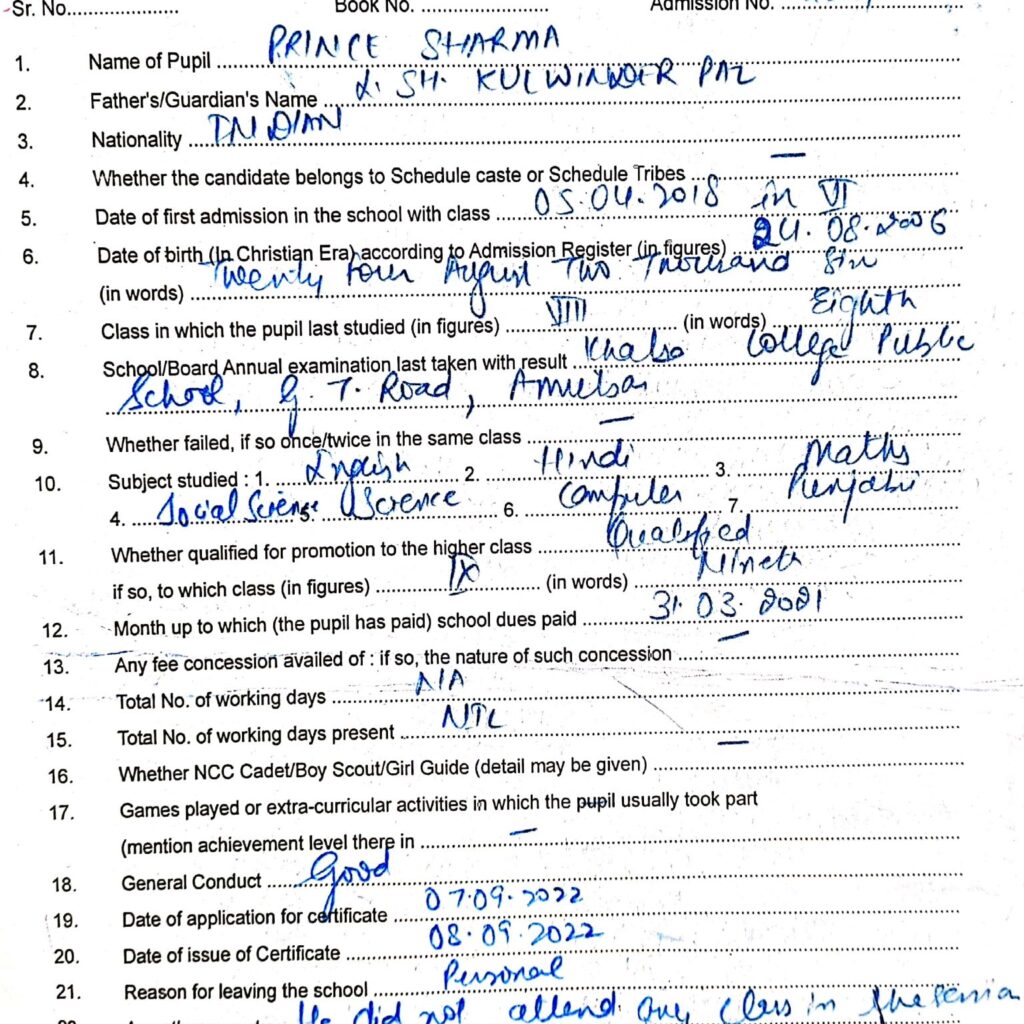 Sr. No.
Book No.
Admission No.
1. Name of Pupil PRINCE SHARMA
2. Father's/Guardian's Name SH. KULWINDER PAL
3. Nationality INDIAN
4. Whether the candidate belongs to Schedule caste or Schedule Tribes —
5. Date of first admission in the school with class 05.04.2018 in VI
6. Date of birth (In Christian Era) according to Admission Register (in figures) 24.08.2006
(in words) Twenty Four August Two Thousand Six
7. Class in which the pupil last studied (in figures) VIII (in words) Eighth
8. School/Board Annual examination last taken with result Khalsa College Public
School, G. T. Road, Amritsar
9. Whether failed, if so once/twice in the same class —
10. Subject studied : 1. English 2. Hindi 3. Maths
4. Social Science 5. Science 6. Computer 7. Punjabi
11. Whether qualified for promotion to the higher class Qualified
if so, to which class (in figures) IX (in words) Nineth
12. Month up to which (the pupil has paid) school dues paid 31.03.2021
13. Any fee concession availed of : if so, the nature of such concession —
14. Total No. of working days N/A
15. Total No. of working days present NIL
16. Whether NCC Cadet/Boy Scout/Girl Guide (detail may be given) —
17. Games played or extra-curricular activities in which the pupil usually took part
(mention achievement level there in —
18. General Conduct Good
19. Date of application for certificate 07.09.2022
20. Date of issue of Certificate 08.09.2022
21. Reason for leaving the school Personal
He did not attend any class in the